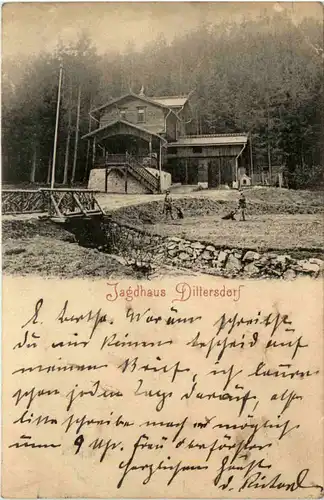 Jagdhaus Dittersdorf
L. Bertha. Warum schreibst
du mir keinen Bescheid auf
meinen Brief, ich lauere
schon jeden Tag darauf, also
bitte schreibe mach es möglich
um 9 Uhr. Frau Oberförster
herzlichen Gruß
d. Richard